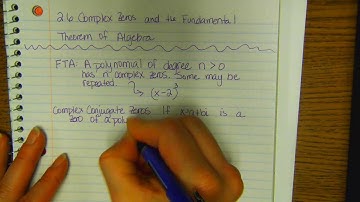 2.6 Complex Zeros and the Fundamental
Theorem of Algebra
FTA: A polynomial of degree n > 0
has n complex zeros. Some may be
repeated. ↳ (x-2)³
Complex Conjugate Zeros If is a
zero of a poly